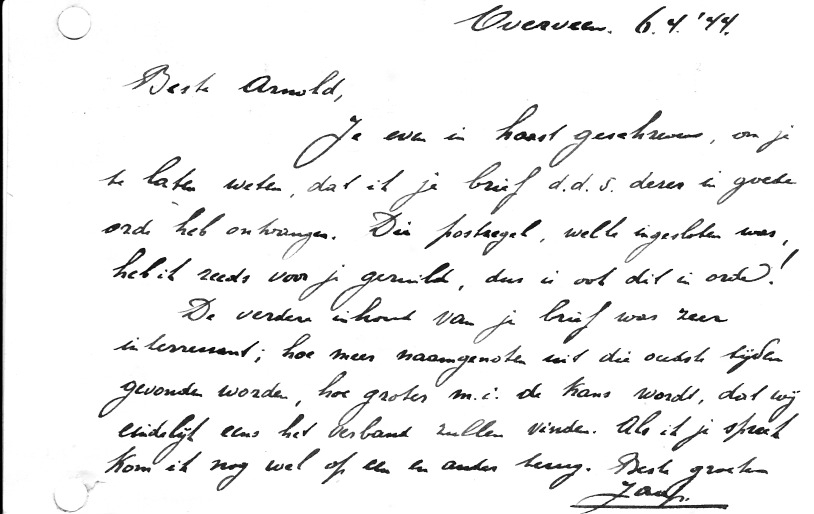 Overveen. 6.4.'44.
Beste Arnold,
Je even in haast geschreven, om je
te laten weten, dat ik je brief d.d. 5. dezer in goede
orde heb ontvangen. Die postzegel, welke ingesloten was,
heb ik reeds voor je geruild, dus is ook dit in orde!
De verdere inhoud van je brief was zeer
interressant; hoe meer naamgenoten uit die oudste tijden
gevonden worden, hoe groter m.i. de kans wordt, dat wij
eindelijk eens het verband zullen vinden. Als ik je spreek
kom ik nog wel op een en ander terug. Beste groeten
Jaap.